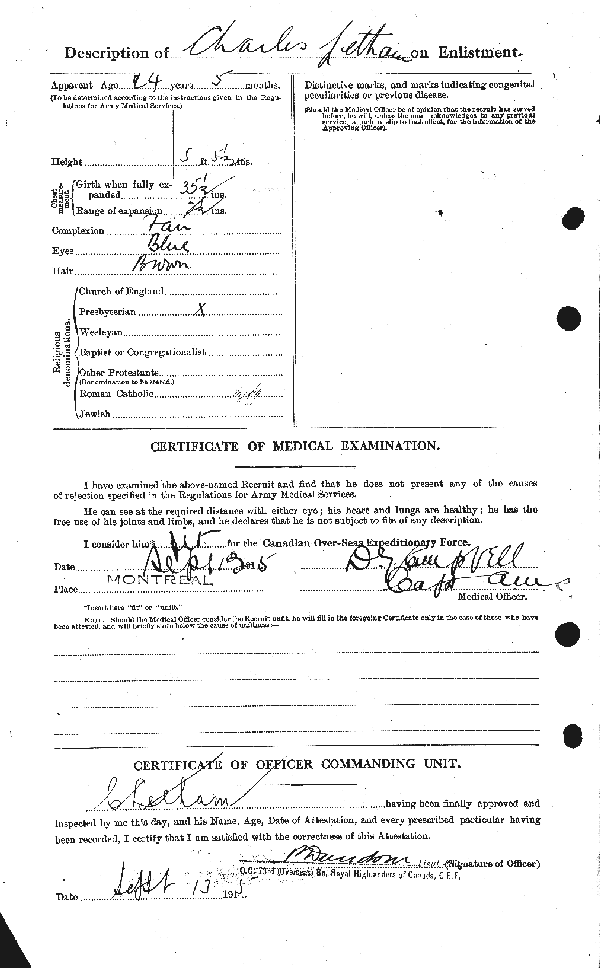 Description of Charles Letham on Enlistment.
Apparent Age 24 years 5 months.
(To be determined according to the instructions given in the Regulations for Army Medical Services.)
Distinctive marks, and marks indicating congenital
peculiarities or previous disease.
(Should the Medical Officer be of opinion that the recruit has served
before, he will, unless the man acknowledges to any previous
service, attach a slip to that effect, for the information of the
Approving Officer).
Height 5 ft. 5½ ins.
Chest measurement
Girth when fully expanded 35½ ins.
Range of expansion 2½ ins.
Complexion Fair
Eyes Blue
Hair Brown
Religious denominations.
Church of England
Presbyterian X
Wesleyan
Baptist or Congregationalist
Other Protestants
(Denomination to be stated.)
Roman Catholic
Jewish
CERTIFICATE OF MEDICAL EXAMINATION.
I have examined the above-named Recruit and find that he does not present any of the causes
of rejection specified in the Regulations for Army Medical Services.
He can see at the required distance with either eye; his heart and lungs are healthy; he has the
free use of his joints and limbs, and he declares that he is not subject to fits of any description.
I consider him* fit for the Canadian Over-Seas Expeditionary Force.
Date Sept 13 1915 D G Campbell
Place MONTREAL Capt AMC
Medical Officer.
*Insert here "fit" or "unfit."
NOTE.—Should the Medical Officer consider the Recruit unfit, he will fill in the foregoing Certificate only in the case of those who have
been attested, and will briefly state below the cause of unfitness:—
CERTIFICATE OF OFFICER COMMANDING UNIT.
C Letham having been finally approved and
inspected by me this day, and his Name, Age, Date of Attestation, and every prescribed particular having
been recorded, I certify that I am satisfied with the correctness of this Attestation.
Lieut (Signature of Officer)
O.C. 73rd (Overseas) Bn. Royal Highlanders of Canada, C.E.F.
Date Sept 13 1915